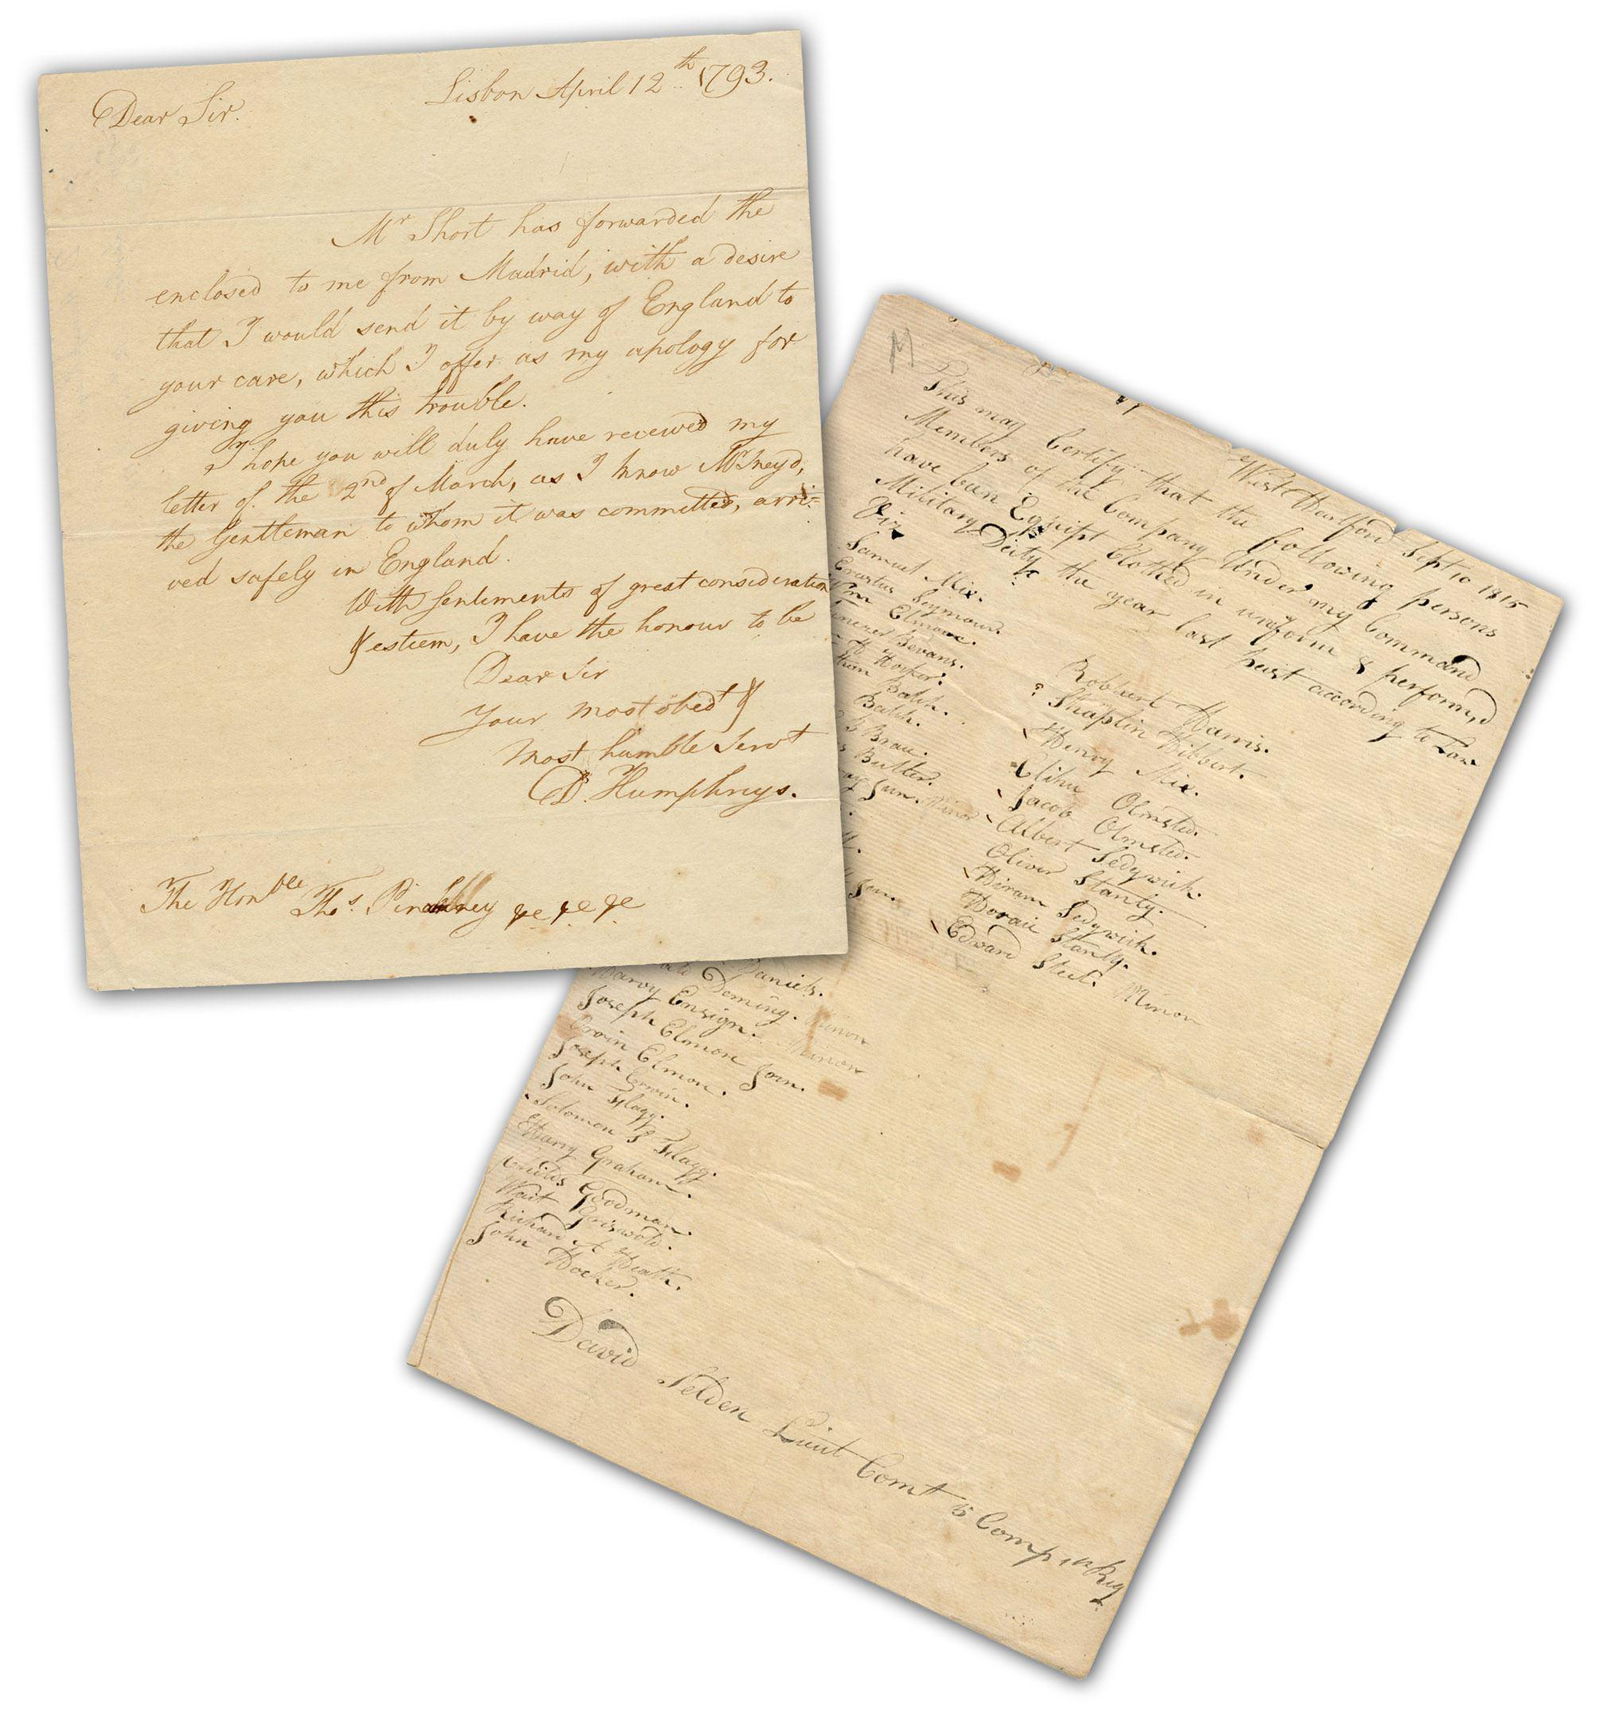 Lisbon April 12th 1793.
Dear Sir.
Mr Short has forwarded the
enclosed to me from Madrid, with a desire
that I would send it by way of England to
your care, which I offer as my apology for
giving you this trouble.
I hope you will duly have received my
letter of the 2nd of March, as I know
the Gentleman to whom it was committed, arri-
ved safely in England.
With sentiments of great consideration
& esteem, I have the honour to be
Dear Sir
Your most obedt &
most humble Servt
D. Humphreys.
The Honble Thos. Pinckney &c &c &c
M
West Hartford Sept 10 1815
This may Certify that the following persons
Members of the Company Under my Command
have been Equipt Clothed in uniform & perform,d
Military Duty the year last past according to Law
Viz
Samuel Mix.
Erastus Seymour.
Elmore.
Bevans.
Balch.
Balch.
Brau.
Butler.
Jun. Minor
Daniels.
Deming. Minor
Harvy Ensign. Minor
Joseph Elmon Jun.
Orvin Elmon.
Joseph Erwin.
John Flagg.
Solomon S Flagg.
Harry Graham.
Goodman.
Wait Griswold.
Richard A Heath.
John Hocker.
Robbert Harris.
Shaplin Hibbert.
Henry Mix.
Elihu Olmsted.
Jacob Olmsted.
Albert Sedgwick.
Oliver Stanly.
Hiram Sedgwick.
Stanly.
Edward Steel. Minor
David Selden Lieut Comt 5 Comp in Reg